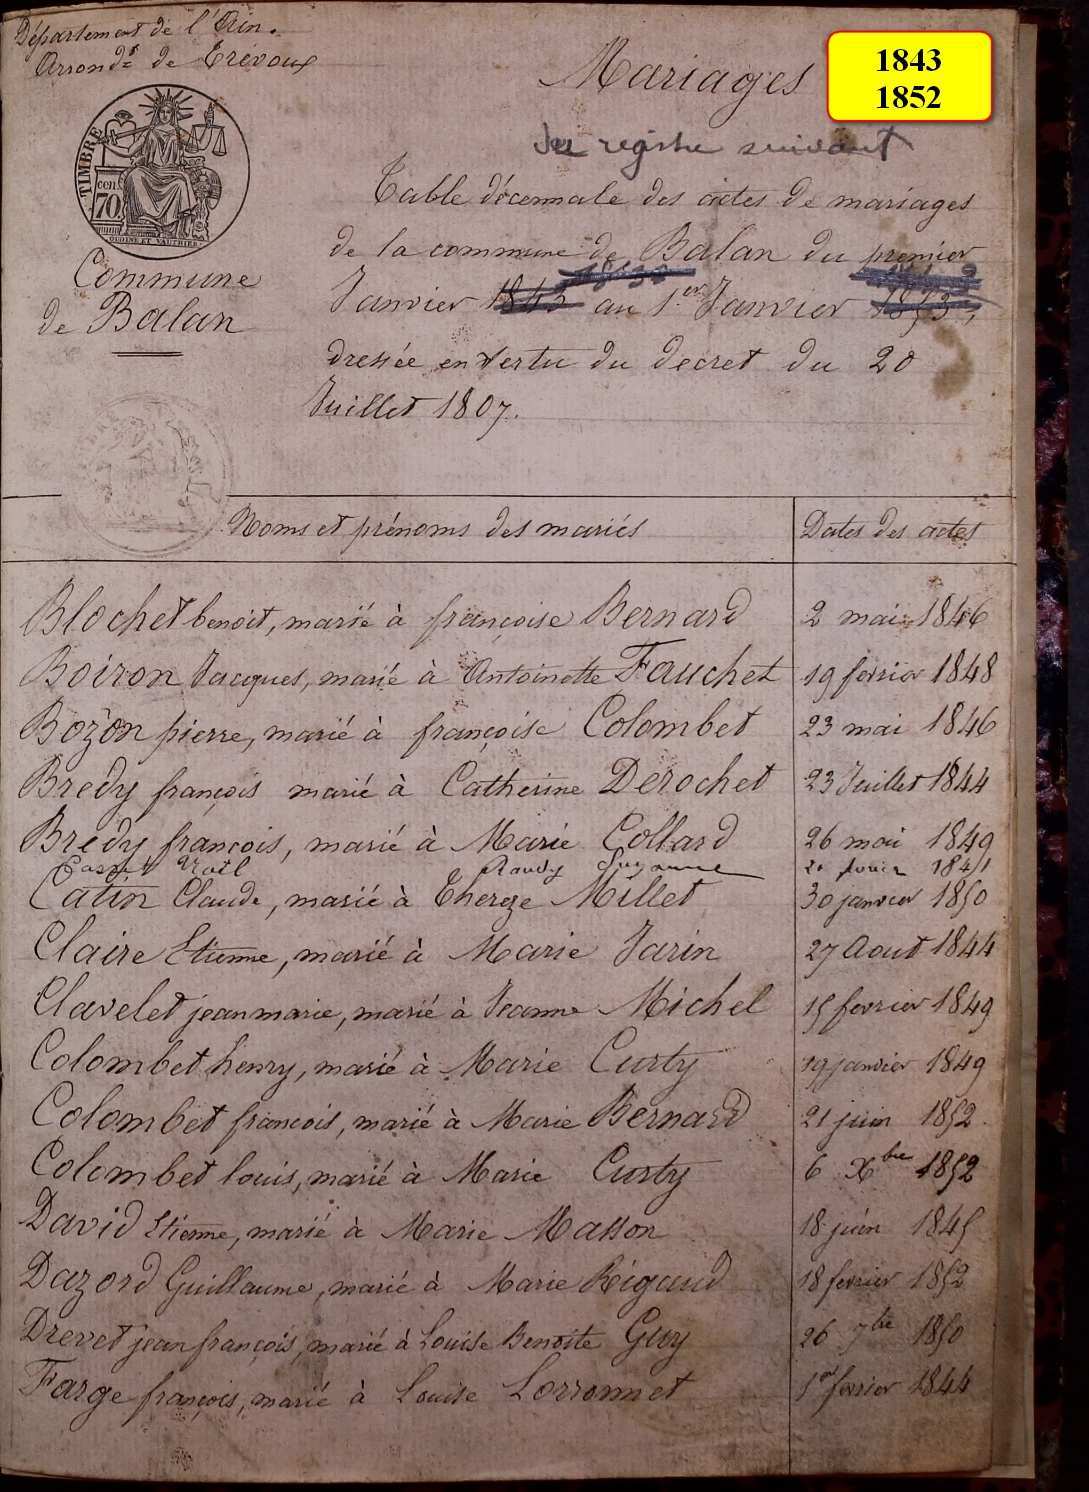 Département de l'Ain.
Arrond.t de Trévoux
Mariages
1843
1852
TIMBRE
cen
70
OUDINE ET VAUTHIER
registre suivant
Table décennale des actes de mariages
de la commune de Balan du premier
Commune
Janvier 1843 au 1.er Janvier 1853,
de Balan
dressée en vertu du decret du 20
Juillet 1807.
Noms et prénoms des mariés
Dates des actes
Blochet benoit, marié à françoise Bernard 2 mai 1846
Boiron Jacques, marié à Antoinette Fauchet 19 fevrier 1848
Bozon pierre, marié à françoise Colombet 23 mai 1846
Bredy françois marié à Catherine Derochet 23 Juillet 1844
Bredy françois, marié à Marie Collard 26 mai 1849
Suzanne fevrier
Catin Claude, marié à Thereze Millet 30 janvier 1850
Claire Etienne, marié à Marie Jarin 27 Aout 1844
Clavelet jean marie, marié à Jeanne Michel 15 fevrier 1849
Colombet henry, marié à Marie Curty 19 janvier 1849
Colombet francois, marié à Marie Bernard 21 juin 1852
Colombet louis, marié à Marie Curty 6 Xbre 1852
David Etienne, marié à Marie Masson 18 juin 1845
Dazord Guillaume, marié à Marie Rigaud 18 fevrier 1852
Drevet jean françois, marié à Louise Benoite Guy 26 7bre 1850
Farge françois, marié à Louise Lorronnet 1er fevrier 1844